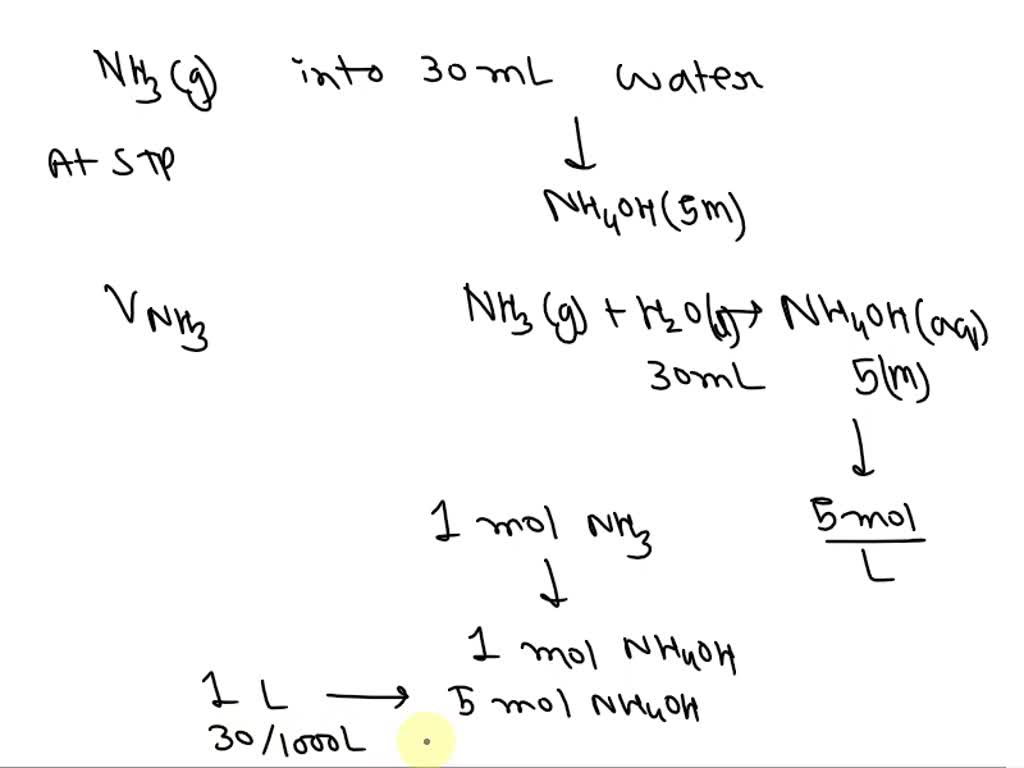 NH3(g) into 30mL water
At STP
↓
NH4OH(5m)
VNH3
NH3(g) + H2O(l) → NH4OH(aq)
30mL 5(m)
↓
1 mol NH3
5mol/L
↓
1 mol NH4OH
1 L → 5 mol NH4OH
30/1000L